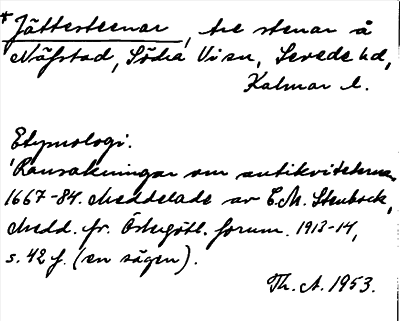 *Jättestenar, tre stenar å
Näfstad, Södra Vi sn, Sevede hd,
Kalmar l.
Etymologi.
Ransakningar om antikviteterna
1667-84. Meddelade av E.M. Stenbock,
Medd. fr. Östergötl. fornm. 1913-14,
s. 42 f. (en sägen).
Th. A. 1953.